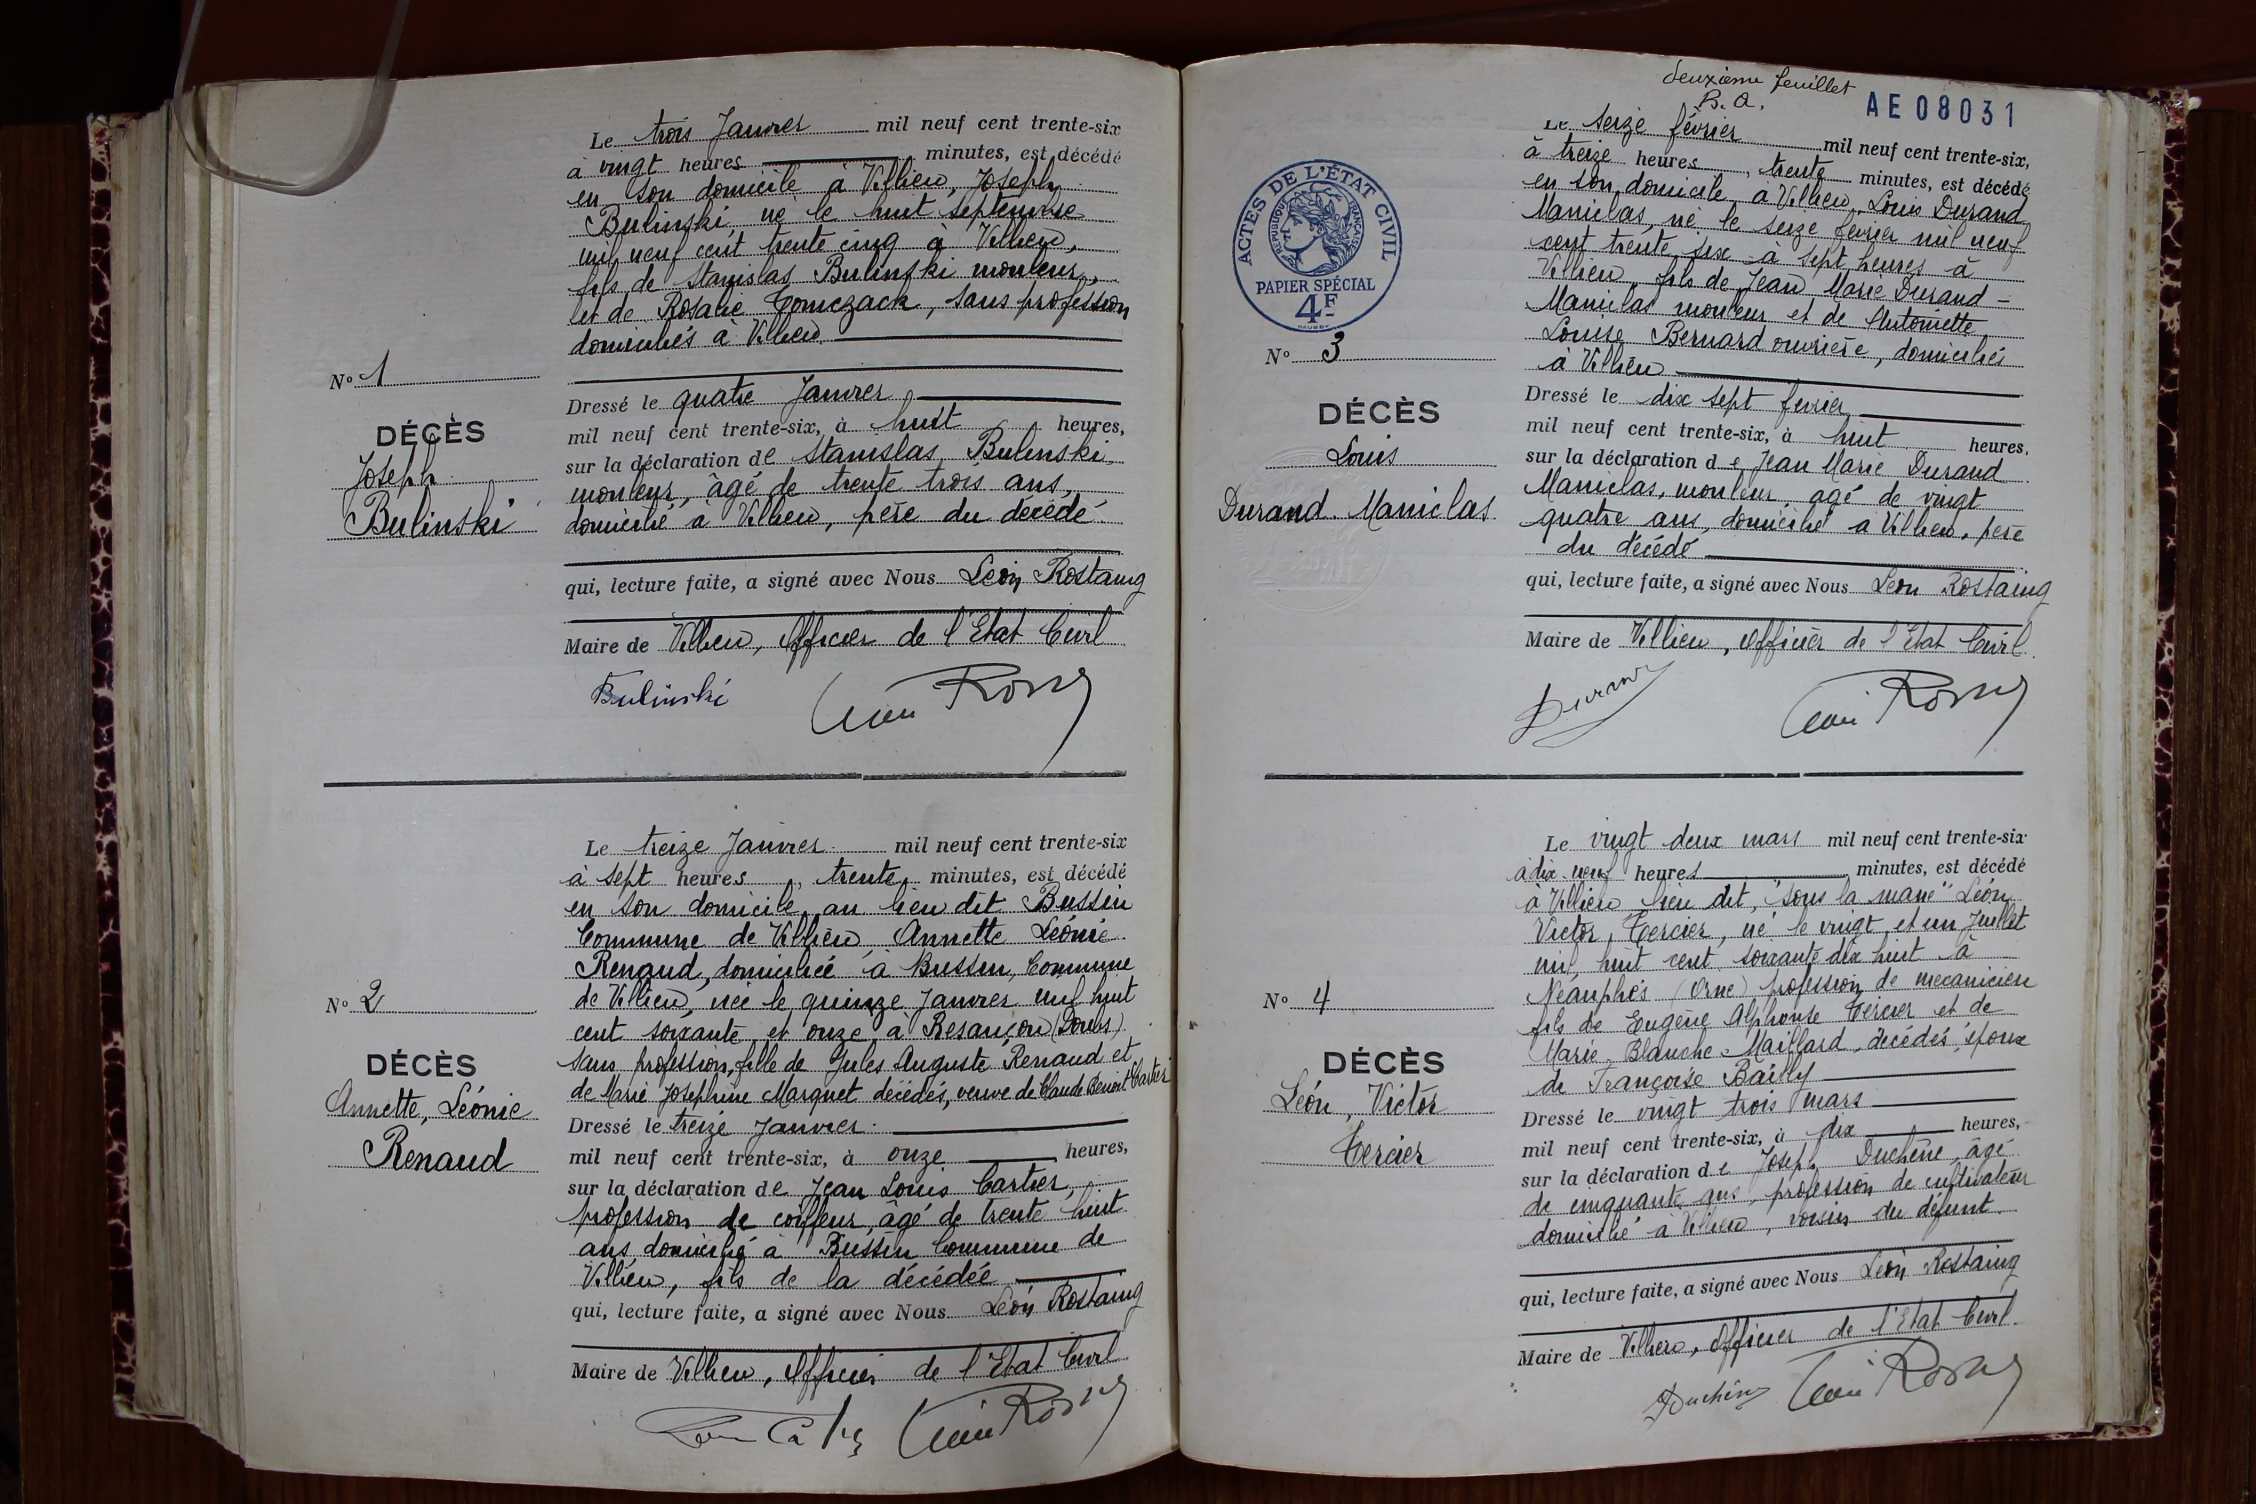 Le trois Janvier mil neuf cent trente-six
à vingt heures minutes, est décédé
en son domicile à Villieu, Joseph
Bulinski, né le huit septembre
mil neuf cent trente cinq à Villieu,
fils de Stanislas Bulinski mouleur,
et de Rosalie Tomczack, sans profession
domiciliés à Villieu
N° 1
DÉCÈS
Joseph
Bulinski
Dressé le quatre Janvier
mil neuf cent trente-six, à huit heures,
sur la déclaration de Stanislas Bulinski
mouleur, âgé de trente trois ans,
domicilié à Villieu, père du décédé
qui, lecture faite, a signé avec Nous Léon Rostaing
Maire de Villieu, Officier de l'Etat Civil
Bulinski
Le treize Janvier mil neuf cent trente-six
à sept heures, trente minutes, est décédé
en son domicile au lieu dit Bussin
Commune de Villieu, Annette Léonie
Renaud, domiciliée à Bussin, Commune
de Villieu, née le quinze Janvier mil huit
cent soixante et onze à Besançon (Doubs)
sans profession, fille de Jules Auguste Renaud et
de Marie Joséphine Marquet décédés, veuve de Claude Benoît Cartier
N° 2
DÉCÈS
Annette, Léonie
Renaud
Dressé le treize Janvier
mil neuf cent trente-six, à onze heures,
sur la déclaration de Jean Louis Cartier,
profession de coiffeur âgé de trente huit
ans domicilié à Bussin Commune de
Villieu, fils de la décédée
qui, lecture faite, a signé avec Nous Léon Rostaing
Maire de Villieu, Officier de l'Etat Civil
deuxième feuillet
B. A.
AE 08031
ACTES DE L'ÉTAT CIVIL
RÉPUBLIQUE FRANÇAISE
PAPIER SPÉCIAL
4F
Le seize février mil neuf cent trente-six,
à treize heures, trente minutes, est décédé
en son domicile à Villieu, Louis Durand
Maniclas, né le seize février mil neuf
cent trente six à sept heures à
Villieu fils de Jean Marie Durand-
Maniclas mouleur et de Antoinette
Louise Bernard ouvrière, domiciliés
à Villieu
N° 3
DÉCÈS
Louis
Durand. Maniclas.
Dressé le dix sept février
mil neuf cent trente-six, à huit heures,
sur la déclaration de Jean Marie Durand
Maniclas, mouleur, âgé de vingt
quatre ans, domicilié à Villieu, père
du décédé
qui, lecture faite, a signé avec Nous Léon Rostaing
Maire de Villieu, Officier de l'Etat Civil.
Le vingt deux mars mil neuf cent trente-six
à dix neuf heures minutes, est décédé
à Villieu lieu dit, "sous la mane" Léon
Victor Tercier, né le vingt et un Juillet
mil huit cent soixante dix huit à
Neauphes (Orne) profession de mécanicien
fils de Eugène Alphonse Tercier et de
Marie Blanche Maillard, décédés, époux
de Françoise Bailly
N° 4
DÉCÈS
Léon, Victor
Tercier
Dressé le vingt trois mars
mil neuf cent trente-six, à dix heures,
sur la déclaration de Joseph Duchêne, âgé
de cinquante ans, profession de cultivateur
domicilié à Villieu, voisin du défunt
qui, lecture faite, a signé avec Nous Léon Rostaing
Maire de Villieu, Officier de l'Etat Civil.
Duchêne